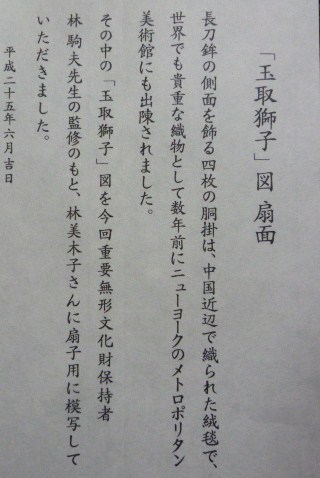 「玉取獅子」図 扇面
長刀鉾の側面を飾る四枚の胴掛は、中国近辺で織られた絨毯で、
世界でも貴重な織物として数年前にニューヨークのメトロポリタン
美術館にも出陳されました。
その中の「玉取獅子」図を今回重要無形文化財保持者
林 駒夫先生の監修のもと、林美木子さんに扇子用に模写して
いただきました。
平成二十五年六月吉日